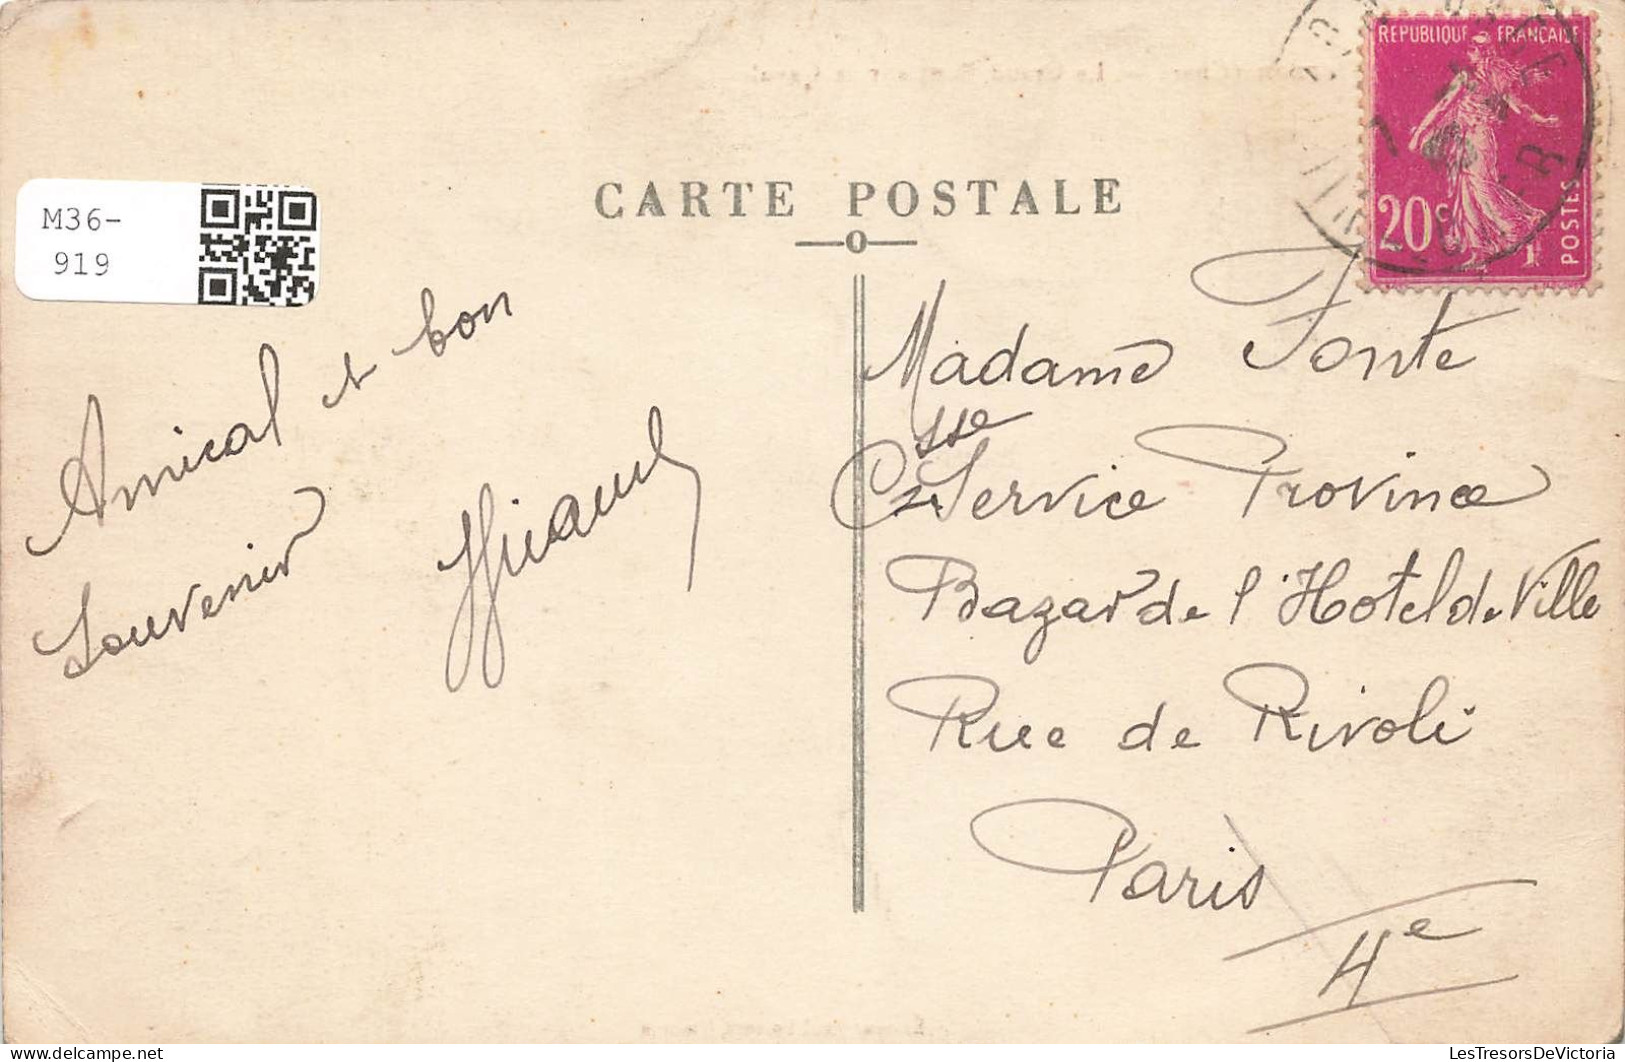 REPUBLIQUE FRANÇAISE
20c
POSTES
CARTE POSTALE
M36-
919
Amical et bon
Souvenir
Madame Fonte
Sse
Service Province
Bazar de l'Hotel de Ville
Rue de Rivoli
Paris
4e
www.LesTresorsDeVictoria.com